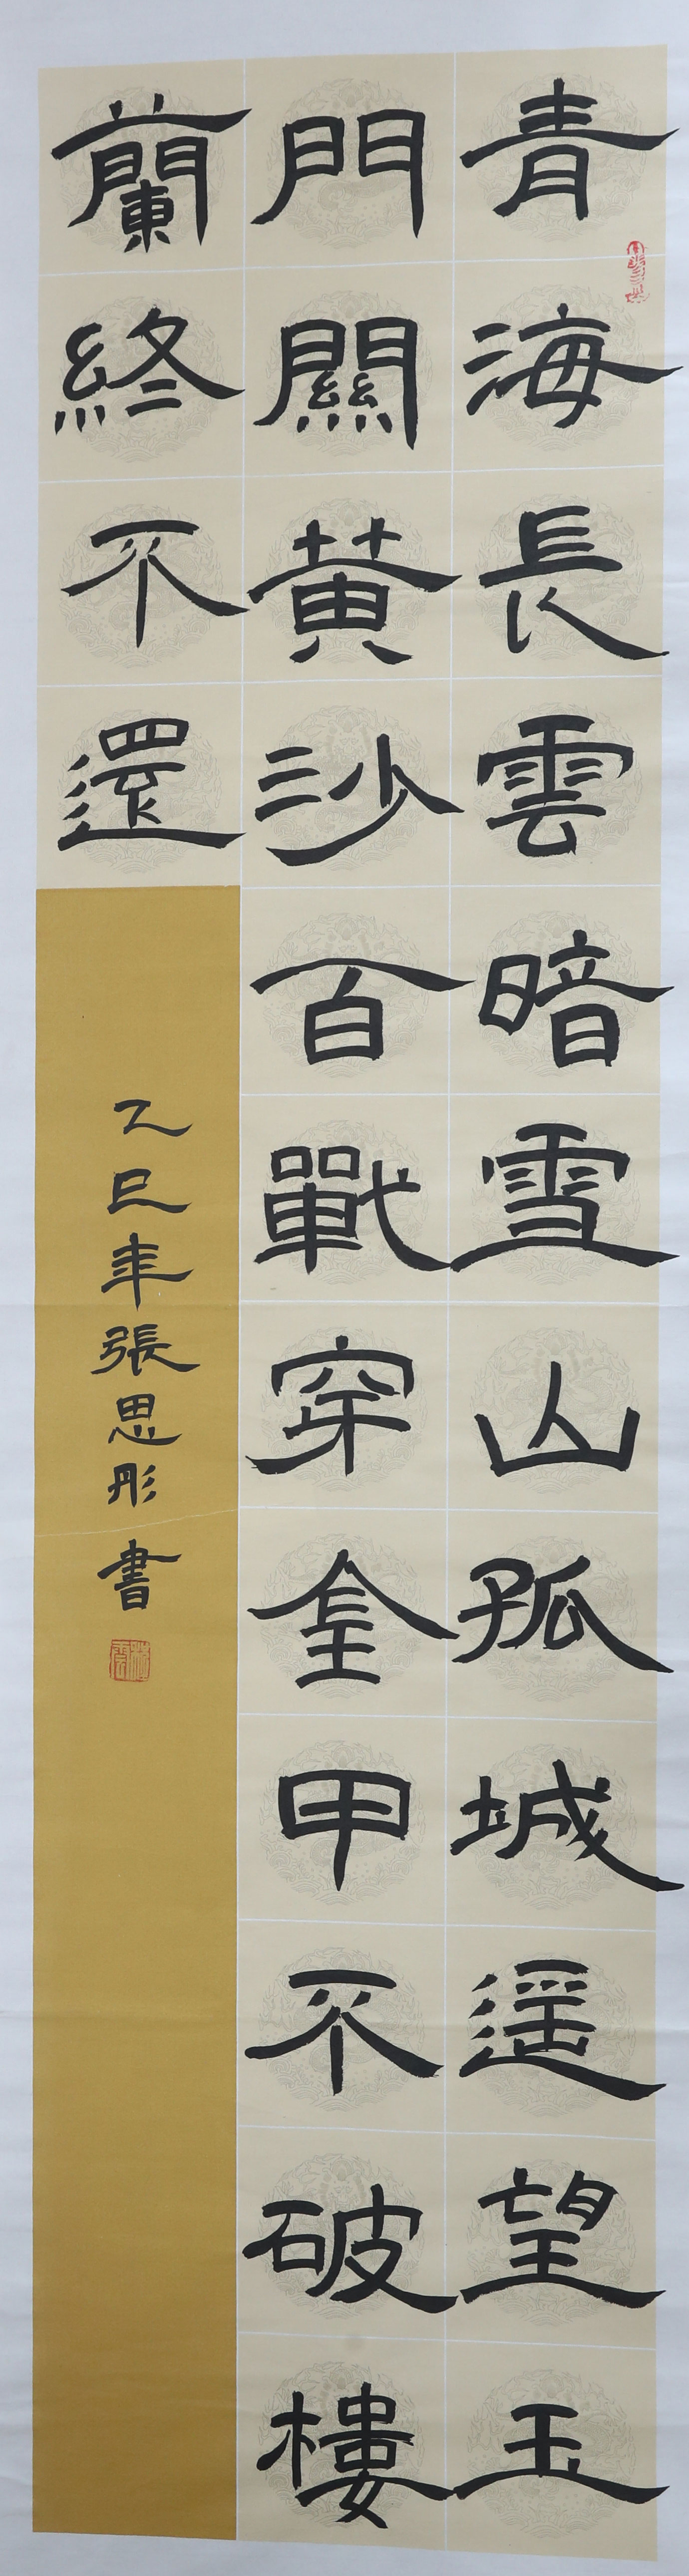 青海長雲暗雪山孤城遥望玉
門關黄沙百戰穿金甲不破樓
蘭終不還
乙巳年張思彤書